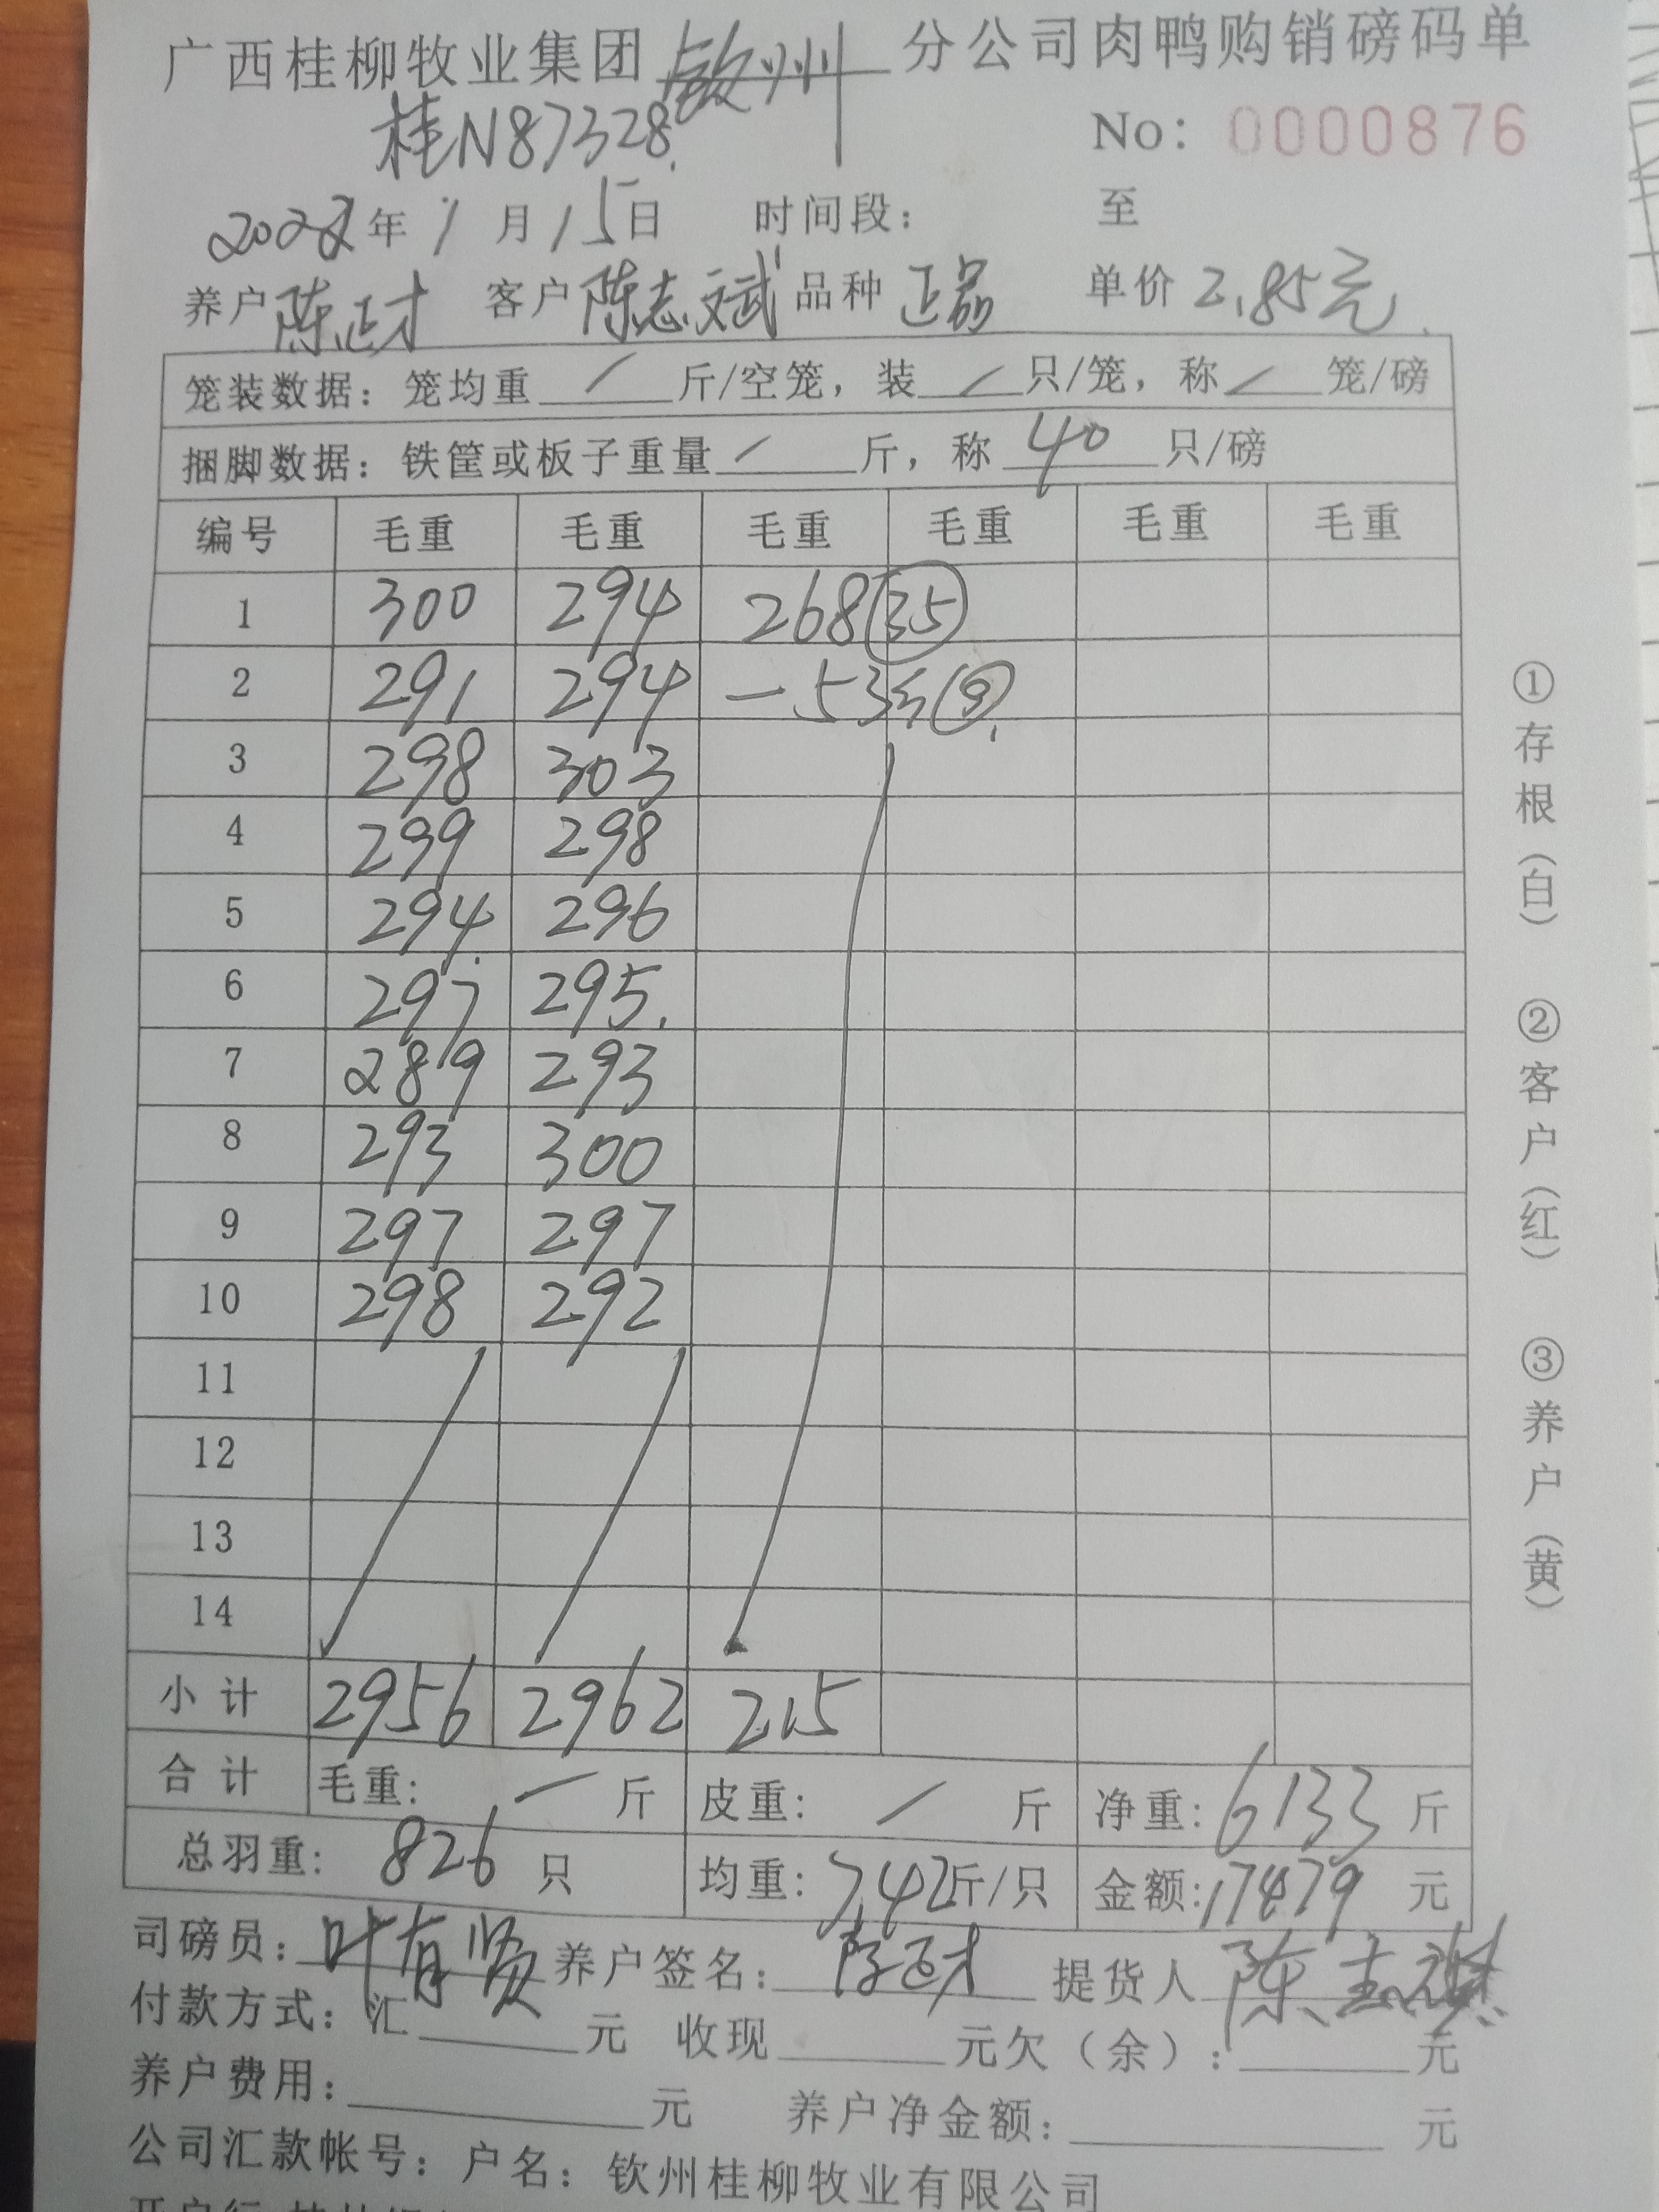 广西桂柳牧业集团 钦州 分公司肉鸭购销磅码单
桂N87328.
No: 0000876
2022年 1月 15日 时间段: 至
养户 陈正才 客户 陈志斌 品种 正品 单价 2.85元
笼装数据: 笼均重 / 斤/空笼, 装 / 只/笼, 称 / 笼/磅
捆脚数据: 铁筐或板子重量 / 斤, 称 40 只/磅
编号 毛重 毛重 毛重 毛重 毛重 毛重
1 300 294 268 35
2 291 294 -53斤 9
3 298 303
4 299 298
5 294 296
6 297 295
7 289 293
8 293 300
9 297 297
10 298 292
11
12
13
14
小计 2956 2962 215
合计 毛重: / 斤 皮重: / 斤 净重: 6133 斤
总羽重: 826 只 均重: 7.42斤/只 金额: 17479 元
司磅员: 叶有贤 养户签名: 陈正才 提货人 陈
付款方式: 汇 元 收现 元欠(余): 元
养户费用: 元 养户净金额: 元
公司汇款帐号: 户名: 钦州桂柳牧业有限公司
①存根(白) ②客户(红) ③养户(黄)